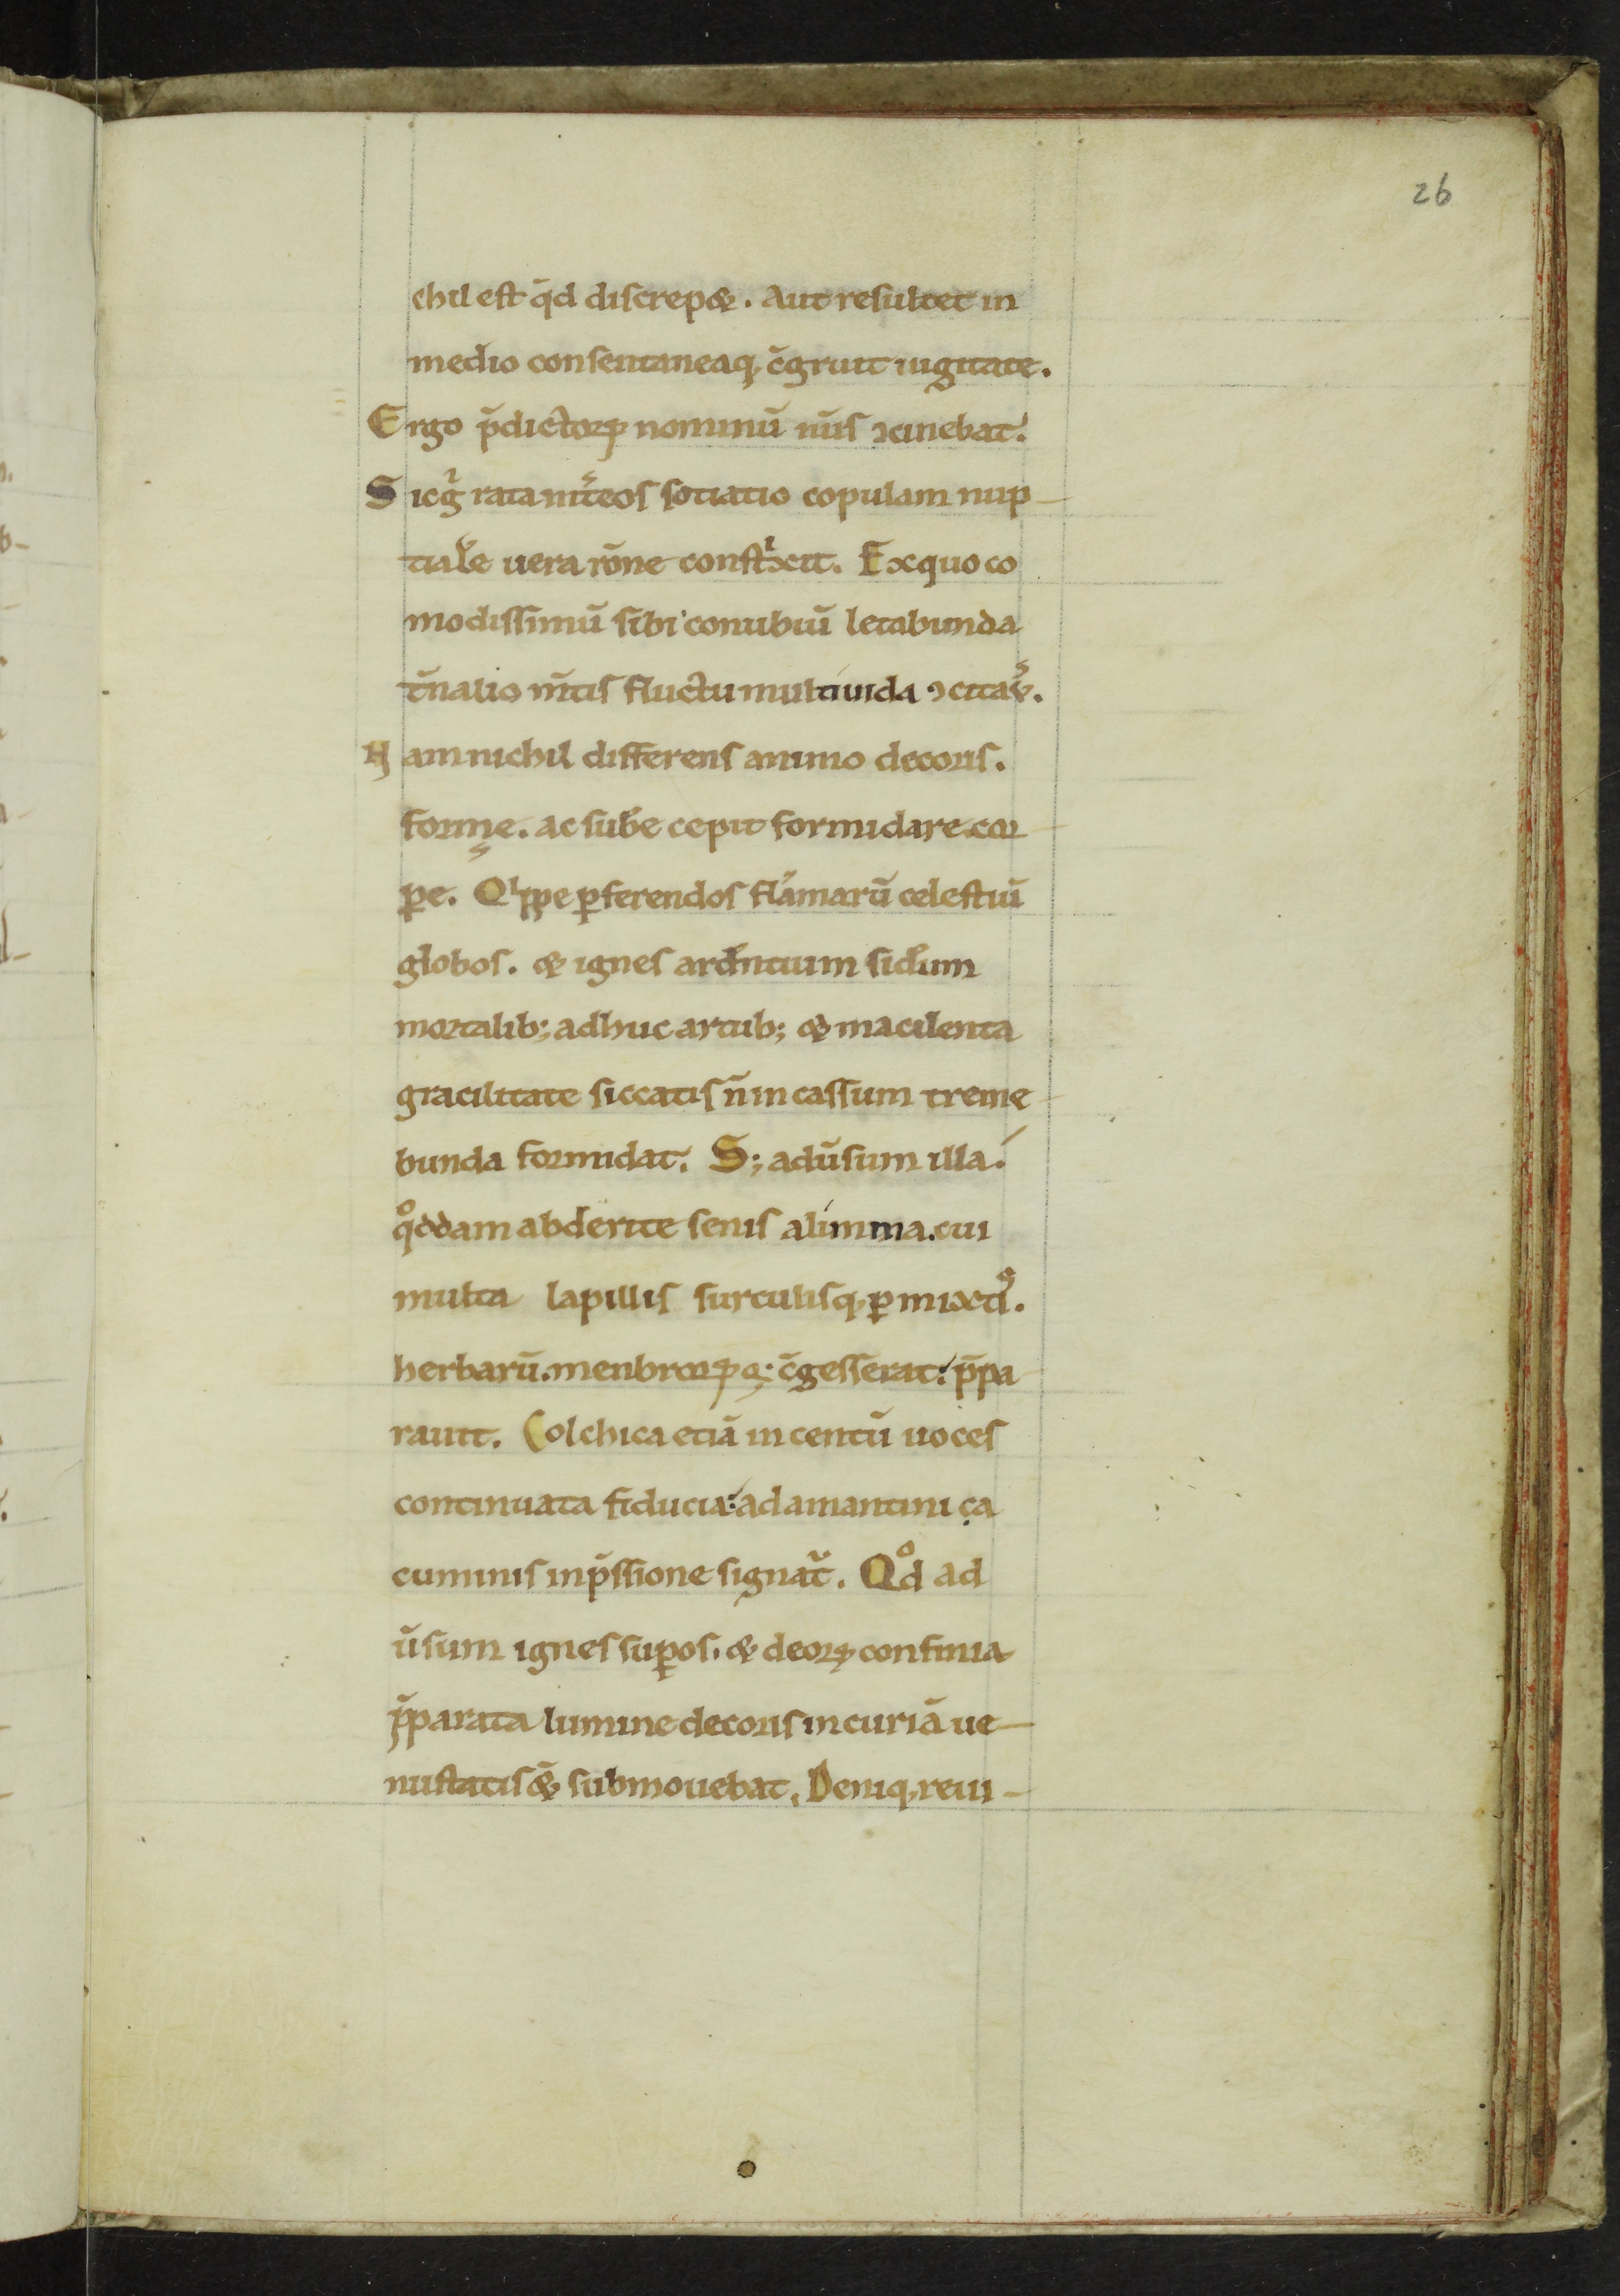 26
chil est q̄d discrep&. Aut resultet in
medio consentaneaq; c̄gruit iugitate.
Ergo p̄dictoꝝ nominū nūs ꝯcinebat.
Sicḡ rata int̄eos sotiatio copulam nup-
tialē uera rōne constͥxit. Ex quo co
modissimū sibi conubiū letabunda
t̄nalio m̄tis fluctu multiuida ꝯcitat̄.
Nam nichil differens animo decoris.
forme. ac sub̄e cepit formidare cor-
ꝑe. Qͥppe ꝑferendos flāmarū celestiū
globos. & ignes ardn̄tium sidm̄
mortalib; adhuc artub; & macilenta
gracilitate siccatis n̄ incassum treme
bunda formidat. S; adūsum illa.
qͦddam abderite senis alimma. cui
multa lapillis surculisq; ꝑmixtͣ.
herbarū. menbroꝝq; c̄gesserat: p̄pa
rauit. Colchica etiā in centū uoces
continuata fiducia: adamantini ca
cuminis inp̄ssione signat̄. Qͦd ad
ūsum ignes suꝑos. & deoꝝ confinia
p̄parata lumine decoris incuriā ue-
nustatis &̄ submouebat. Deniq; reui-